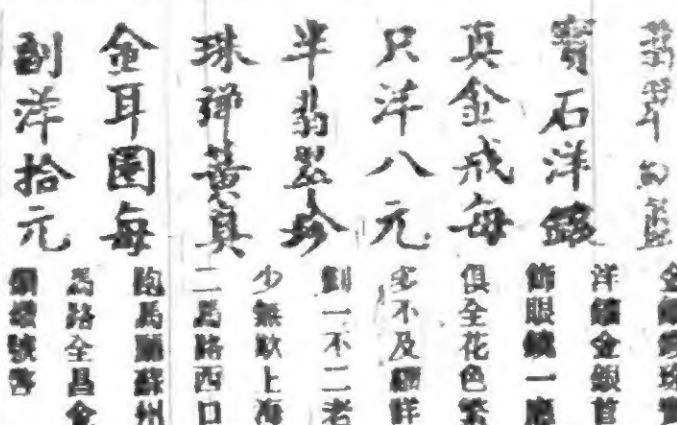 翡翠
寶石洋鑽
真金戒每
只洋八元
半翡翠珍
珠彈黃真
金耳圈每
副洋拾元
金銀珠寶
洋鑽金銀首
飾眼鏡一應
俱全花色繁
多不及細詳
劃一不二老
少無欺上海
二馬路西口
跑馬廳蘇州
馬路全昌金
號啓